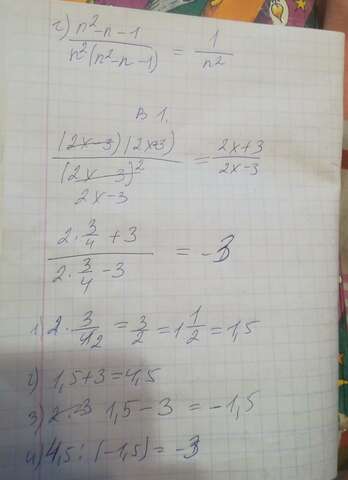 г) (n²-n-1)/(n²(n²-n-1)) = 1/n²
В 1.
(2x-3)(2x3)/(2x-3)² = (2x+3)/(2x-3)
2x-3
(2·3/4+3)/(2·3/4-3) = -3
1) 2·3/4 2 = 3/2 = 1 1/2 = 1,5
2) 1,5+3=4,5
3) 2·3 1,5-3 = -1,5
4) 4,5:(-1,5) = -3